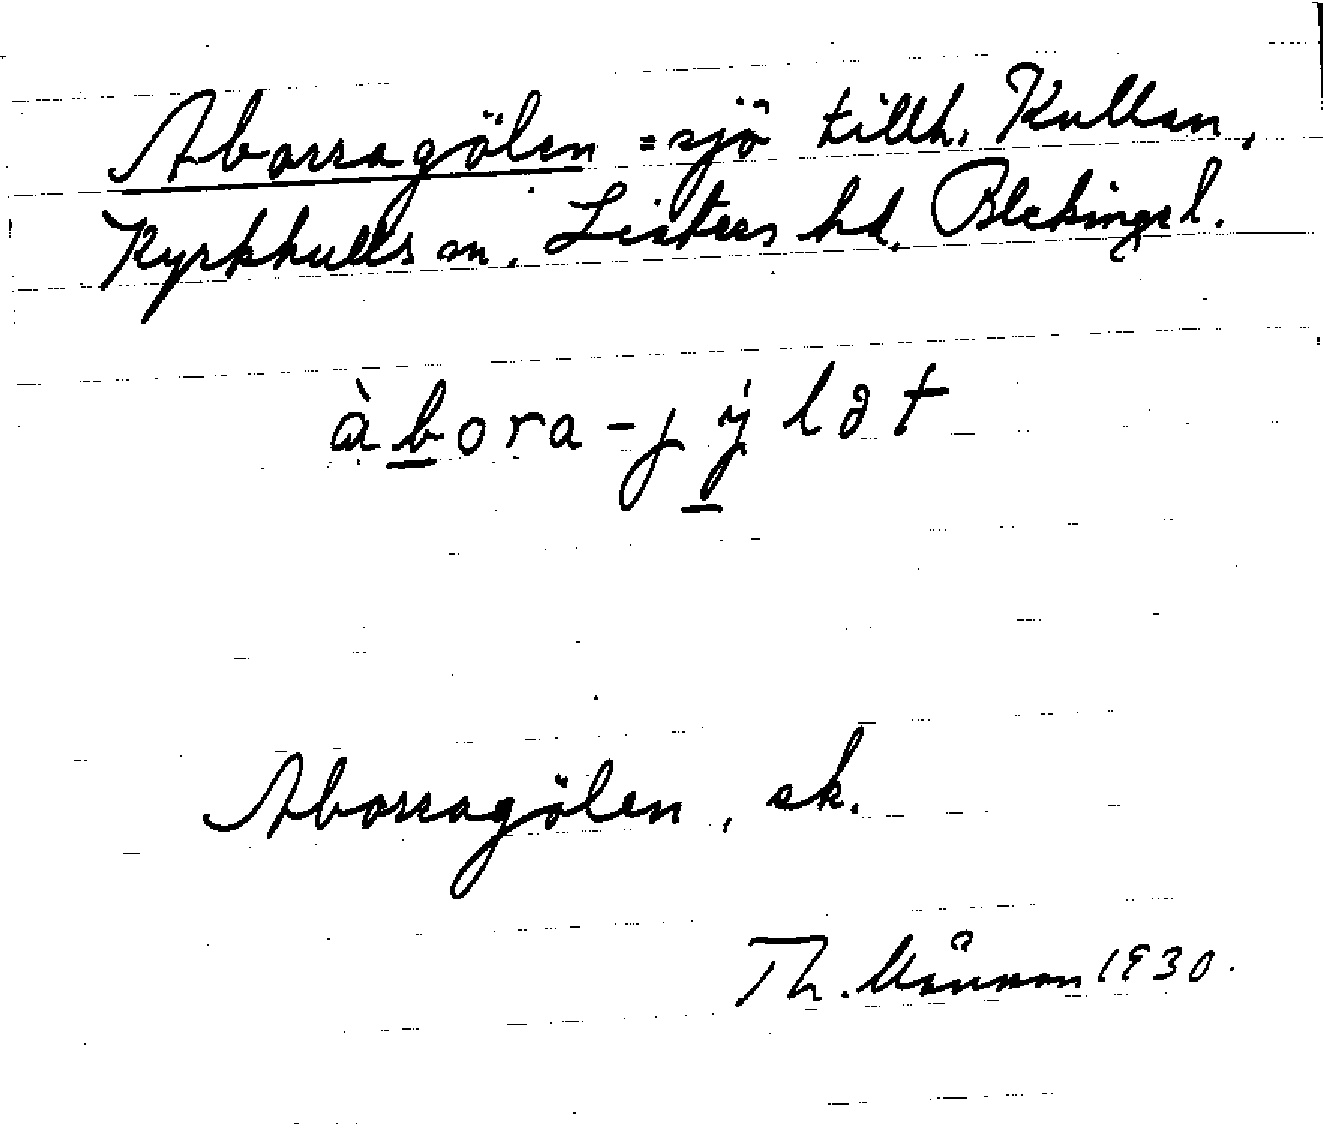 Aborragölen = sjö tillh. Kullan,
Kyrkhults sn. Listers hd. Blekinge l.
àbora-jýlət
Aborragölen, ek.
Th. Månson 1930.